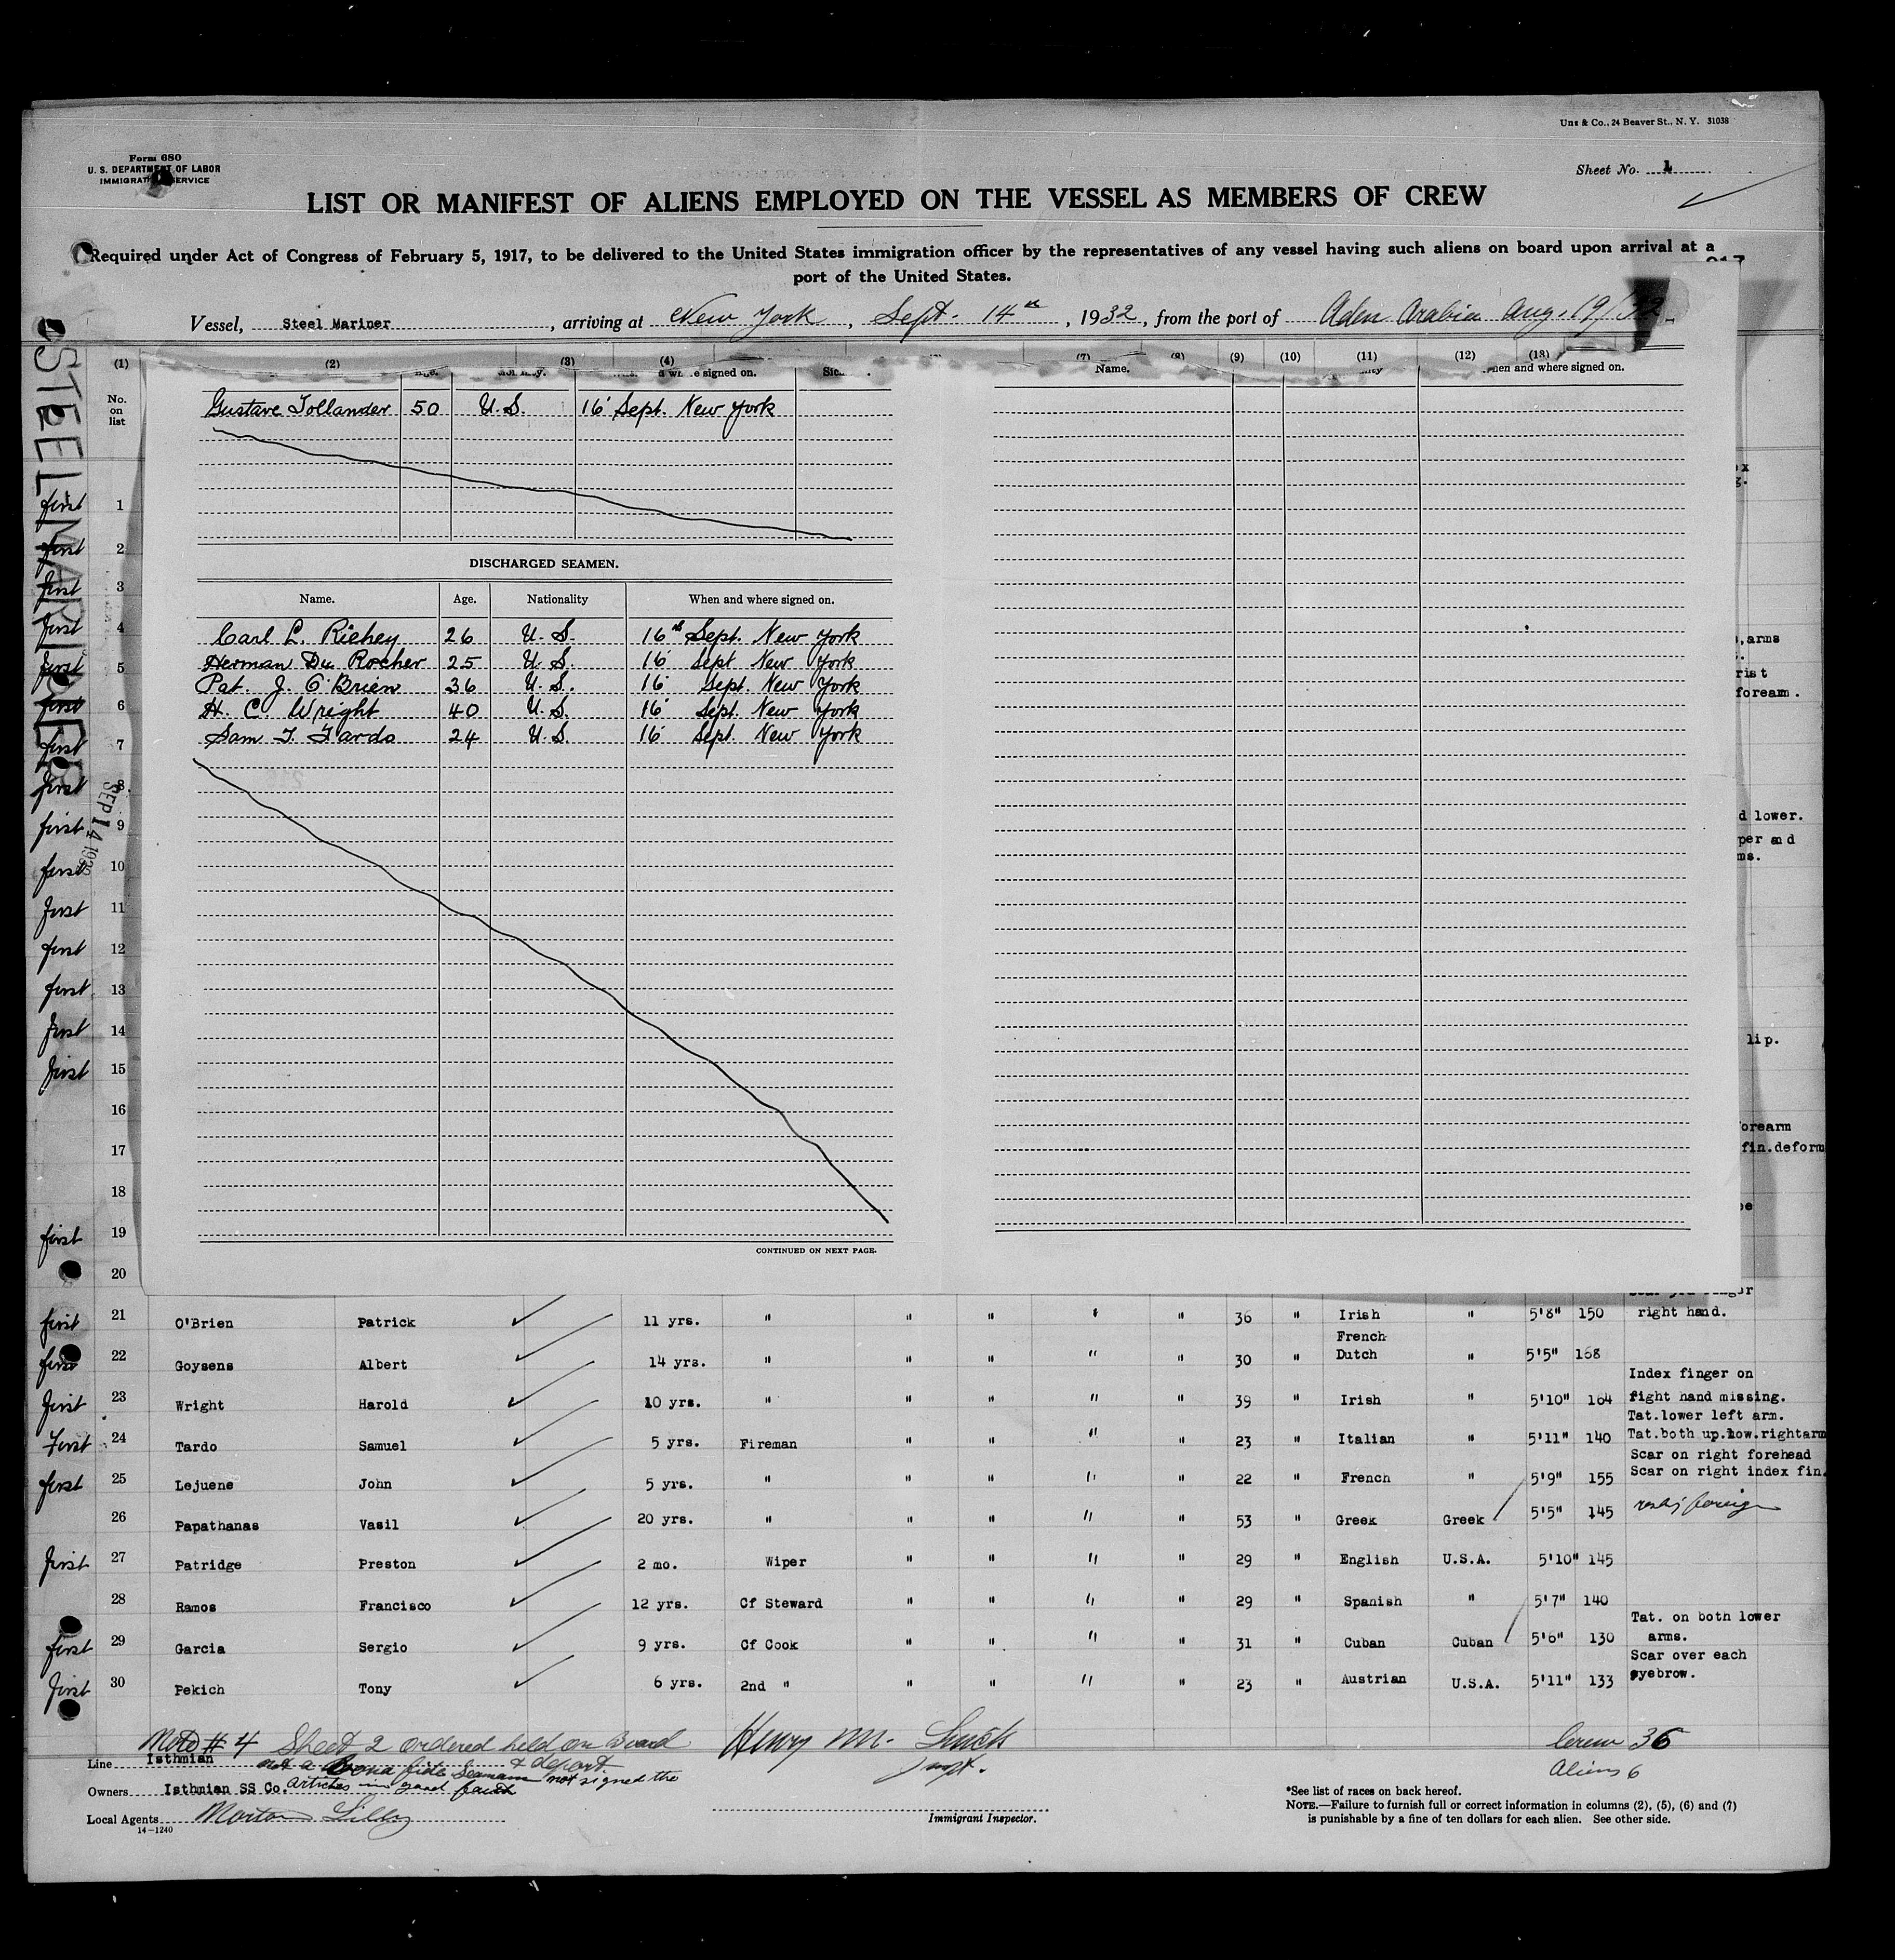 Uns & Co., 24 Beaver St., N. Y. 31038
Form 680
U. S. DEPARTMENT OF LABOR
IMMIGRATION SERVICE
Sheet No. 1
LIST OR MANIFEST OF ALIENS EMPLOYED ON THE VESSEL AS MEMBERS OF CREW
Required under Act of Congress of February 5, 1917, to be delivered to the United States immigration officer by the representatives of any vessel having such aliens on board upon arrival at a
port of the United States.
Vessel, Steel Mariner, arriving at New York, Sept. 14th, 1932, from the port of Aden Arabia Aug. 19/32
(1) (2) (3) (4) (7) (8) (9) (10) (11) (12) (13)
signed on. Name. when and where signed on.
No. on list
STEEL MARINER
SEP 14 1932
Gustave Tollander 50 U.S. 16 Sept. New York
DISCHARGED SEAMEN.
Name. Age. Nationality When and where signed on.
Carl L. Richey 26 U.S. 16th Sept. New York
Herman Du Rocher 25 U.S. 16 Sept New York
Pat. J. O'Brien 36 U.S. 16 Sept. New York
H. C. Wright 40 U.S. 16 Sept. New York
Sam T. Tardo 24 U.S. 16 Sept. New York
CONTINUED ON NEXT PAGE.
first 1
first 2
first 3
first 4
first 5 arms
first 6 forearm.
first 7
first 8
first 9 d lower.
first 10
first 11
first 12
first 13
first 14 lip.
first 15
16
17 fin.deform
18
first 19
20
first 21 O'Brien Patrick 11 yrs. " " " " " 36 " Irish " 5'8" 150 right hand.
first 22 Goysens Albert 14 yrs. " " " " " 30 " French Dutch " 5'5" 168
first 23 Wright Harold 10 yrs. " " " " " 39 " Irish " 5'10" 164 Index finger on right hand missing.
First 24 Tardo Samuel 5 yrs. Fireman " " " " 23 " Italian " 5'11" 140 Tat.lower left arm. Tat.both up.low.rightarm
first 25 Lejuene John 5 yrs. " " " " " 22 " French " 5'9" 155 Scar on right forehead Scar on right index fin.
26 Papathanas Vasil 20 yrs. " " " " " 53 " Greek Greek 5'5" 145
first 27 Patridge Preston 2 mo. Wiper " " " " 29 " English U.S.A. 5'10" 145
28 Ramos Francisco 12 yrs. Cf Steward " " " " 29 " Spanish " 5'7" 140
first 29 Garcia Sergio 9 yrs. Cf Cook " " " " 31 " Cuban Cuban 5'6" 130 Tat. on both lower arms.
first 30 Pekich Tony 6 yrs. 2nd " " " " " 23 " Austrian U.S.A. 5'11" 133 Scar over each eyebrow.
Note #4 Sheet 2 ordered held on Board & deport.
not a Bona fide Seaman not signed the
articles in good faith
Henry M.
Crew 36
Aliens 6
Line Isthmian
Owners Isthmian SS Co.
Local Agents Morton Lilly
14-1240
Immigrant Inspector.
*See list of races on back hereof.
NOTE.—Failure to furnish full or correct information in columns (2), (5), (6) and (7)
is punishable by a fine of ten dollars for each alien. See other side.